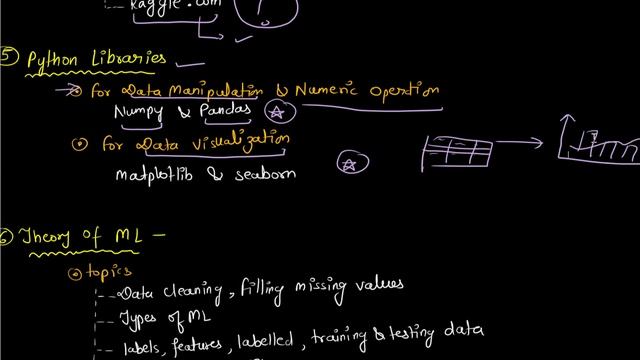 Kaggle.com
5 Python Libraries
For Data Manipulation & Numeric Opertion
Numpy & Pandas
For Data Visualization
matplotlib & seaborn
6 Theory of ML -
topics
Data cleaning, filling missing values
Types of ML
labels, features, labelled, training & testing data